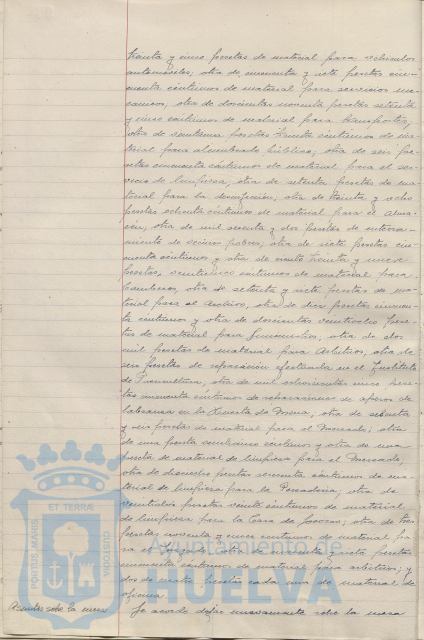 treinta y cinco pesetas de material para vehículos
automóviles; otra de cincuenta y siete pesetas cin-
cuenta céntimos de material para servicios me-
cánicos, otra de doscientas noventa pesetas setenta
y cinco céntimos de material para transportes;
otra de pesetas treinta céntimos de ma-
terial para alumbrado público; otra de seis pe-
setas cincuenta céntimos de material para el ser-
vicio de limpieza, otra de setenta pesetas de ma-
terial para la desinfección; otra de treinta y ocho
pesetas ochenta céntimos de material para el Alma-
cén, otra de mil sesenta y dos pesetas de
miento de pobres, otra de siete pesetas cin-
cuenta céntimos y otra de ciento treinta y nueve
pesetas, veinticinco céntimos de material para
, otra de setenta y siete pesetas de ma-
terial para el Archivo, otra de diez pesetas cincuen-
ta céntimos y otra de doscientas veintiocho pese-
tas de material para , otra de dos
mil pesetas de material para Arbitrios, otra de
seis pesetas de reparación efectuada en el Instituto
de Puericultura, otra de mil ochocientas once pese-
tas cincuenta céntimos de reparaciones de aperos de
labranza en la Huerta de Mena, otra de sesenta
y una pesetas de material para el Mercado; otra
de una peseta veinticinco céntimos y otra de una
peseta de material de limpieza para el Mercado;
otra de pesetas sesenta céntimos de ma-
terial de limpieza para la Pescadería; otra de
veintiocho pesetas veinte céntimos de material
de limpieza para la Casa de Socorro; otra de tres
pesetas noventa y cinco céntimos de material pa-
ra el ; otra de pesetas
cincuenta céntimos de material para arbitrios; y
dos de pesetas cada una de material de
oficina.
Asuntos sobre la mesa Se acordó dejar nuevamente sobre la mesa
PORTUS MARIS ET TERRÆ CUSTODIA
Ayuntamiento de
HUELVA